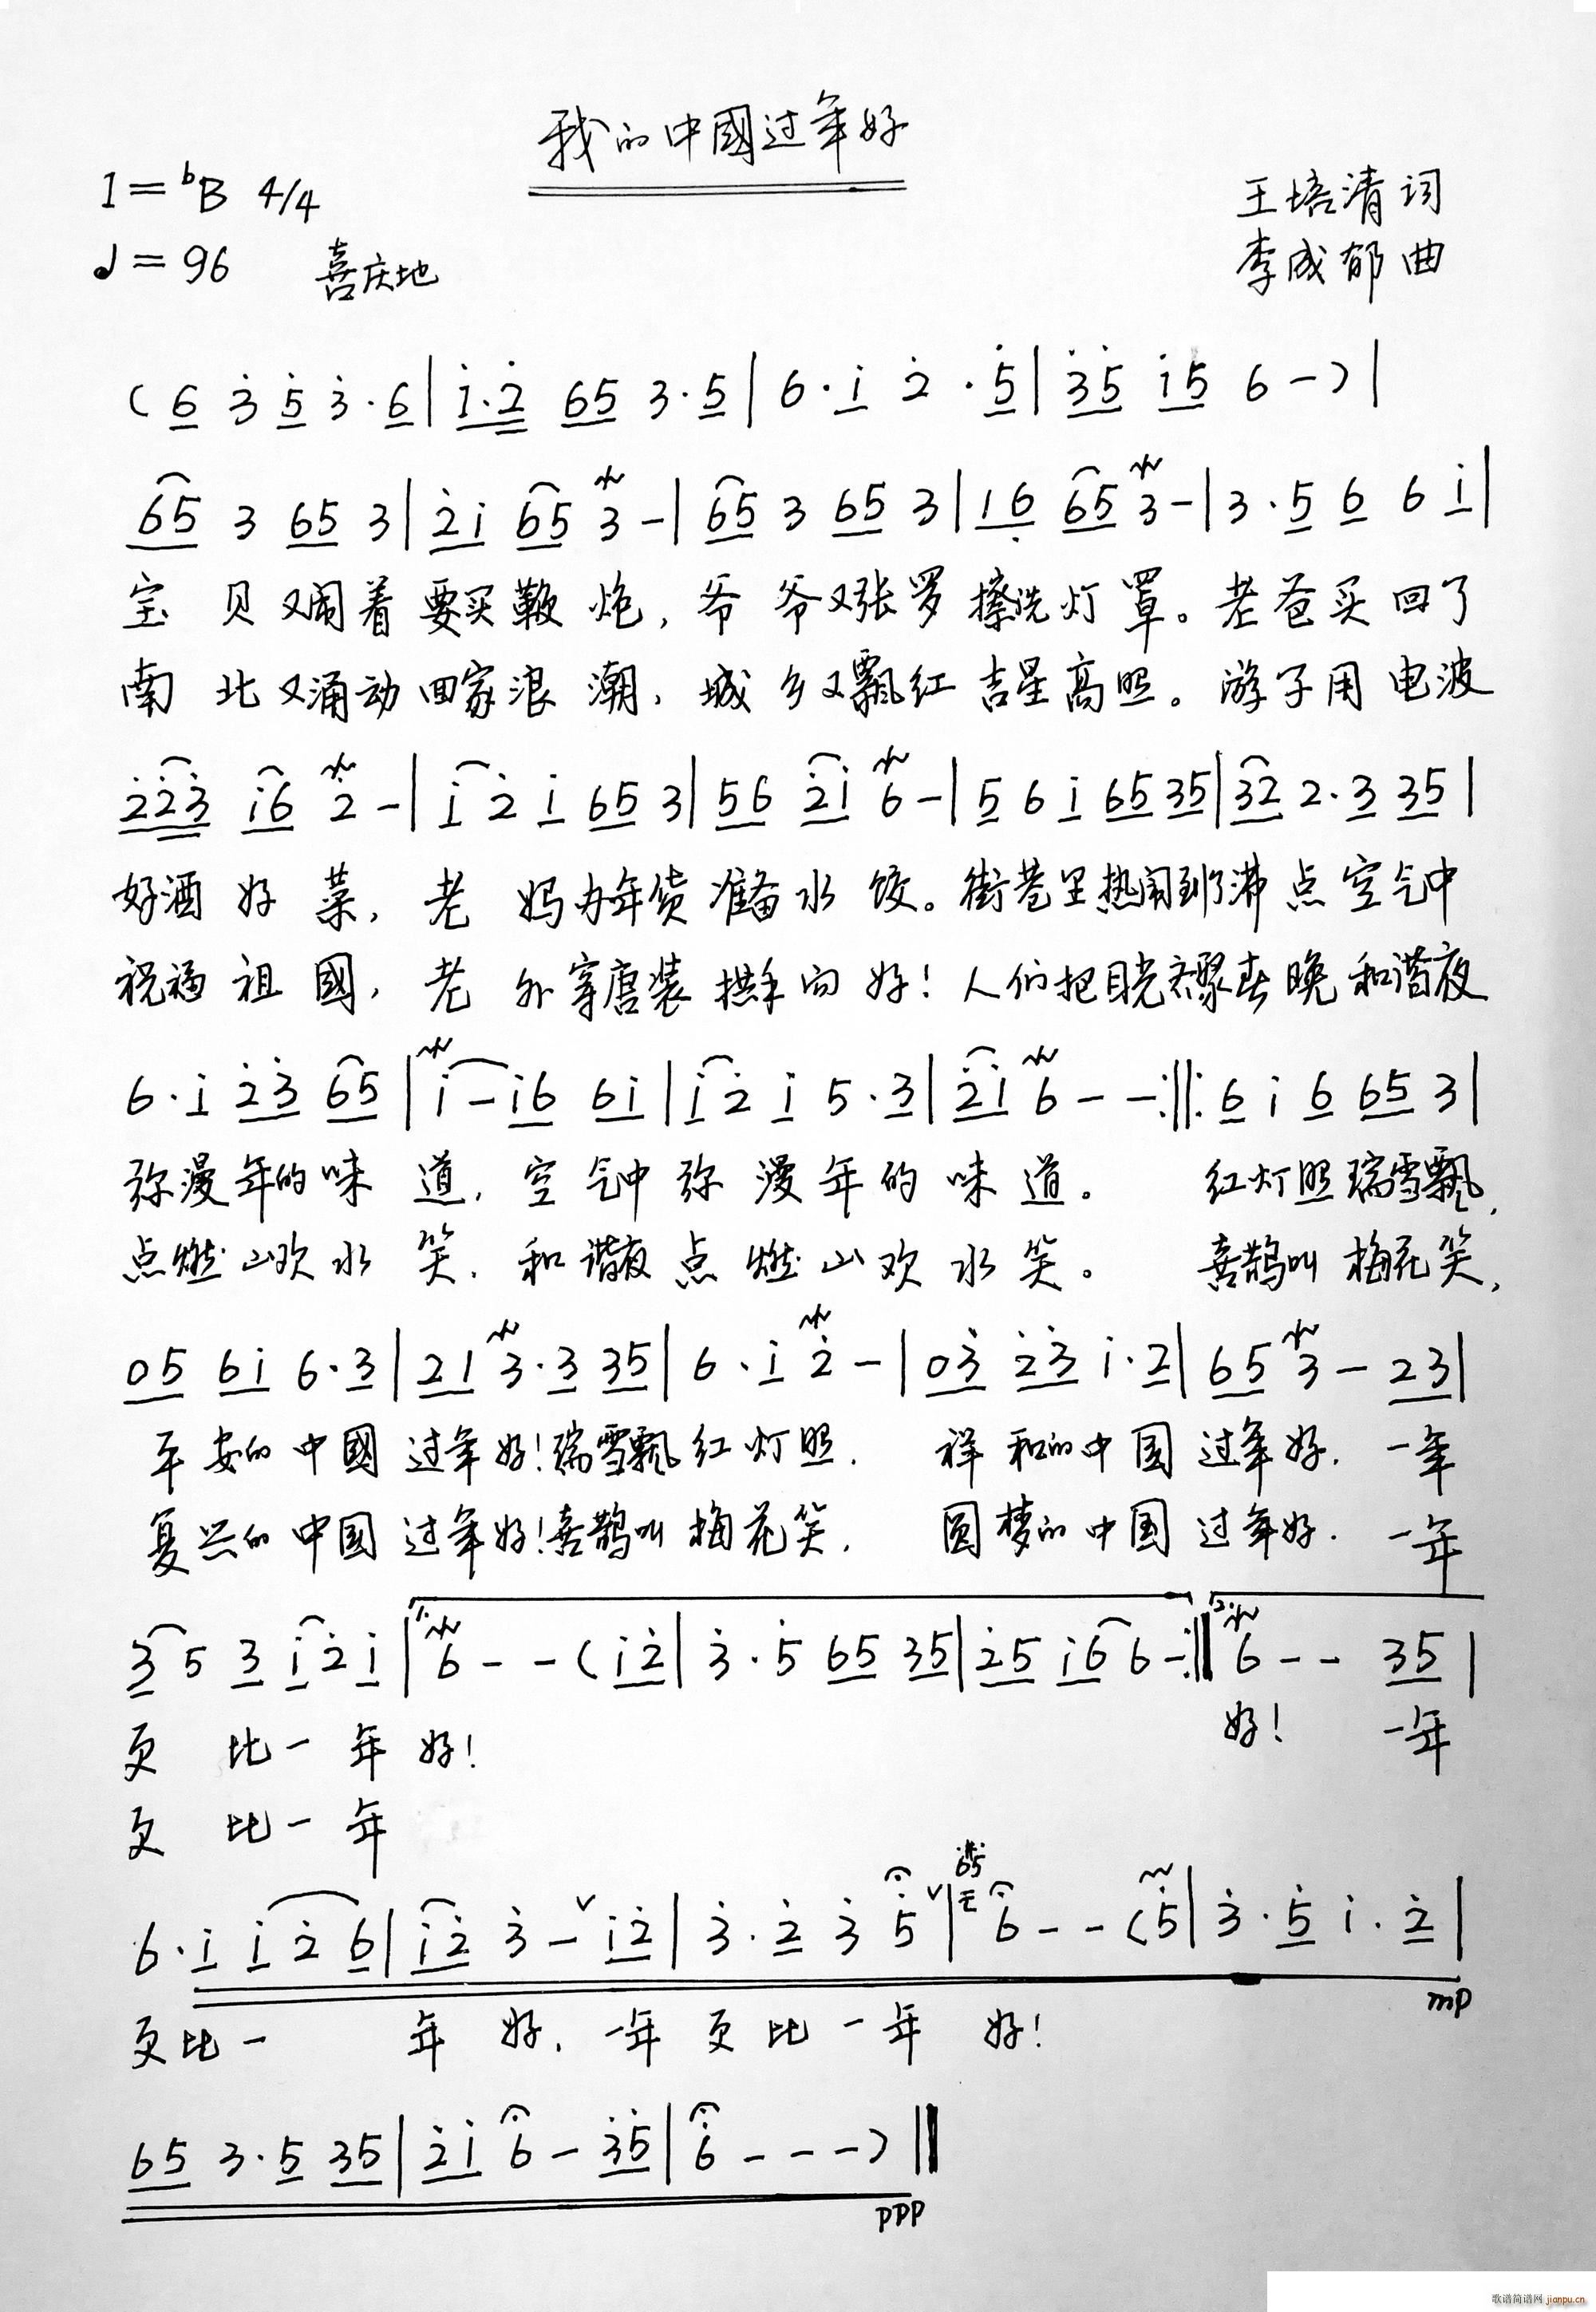 我的中國过年好
1=ᵇB 4/4
王培清 词
♩=96 喜庆地
李成郁 曲
(6 3̇ 5̇ 3̇·6|1̇·2̇ 65 3·5|6·1̇ 2̇·5̇|3̇5̇ 1̇5 6-)|
65 3 65 3|2̇1̇ 65 3-|65 3 65 3|16̣ 65 3-|3·5 6 6 1̇|
宝贝又闹着要买鞭炮,爷爷又张罗擦洗灯罩。老爸买回了
南北又涌动回家浪潮,城乡又飘红吉星高照。游子用电波
2̇2̇3̇ 1̇6 2̇-|1̇ 2̇ 1̇ 65 3|56 2̇1̇ 6-|5 6 1̇ 65 35|32 2·3 35|
好酒好菜,老妈办年货准备水饺。街巷里热闹到了沸点空气中
祝福祖國,老外穿唐装拱手向好!人们把目光聚春晚和谐夜
6·1̇ 2̇3̇ 65|1̇-1̇6 61̇|1̇ 2̇ 1̇ 5·3|2̇1̇ 6--:||:6 1̇ 6 65 3|
弥漫年的味道,空气中弥漫年的味道。红灯照瑞雪飘,
点燃山欢水笑,和谐夜点燃山欢水笑。喜鹊叫梅花笑,
05 61̇ 6·3|21 3·3 35|6·1̇ 2̇-|03̇ 2̇3̇ 1̇·2|65 3-23|
平安的中國过年好!瑞雪飘红灯照.祥和的中国过年好.一年
复兴的中国过年好!喜鹊叫梅花笑.圆梦的中国过年好.一年
3 5 3 1̇ 2̇ 1̇|1. 6--(1̇2̇|3̇·5̇ 65 35|2̇5 1̇6 6-:|2. 6--35|
更比一年好!好!一年
更比一年
6·1̇ 1̇ 2̇ 6|1̇2̇ 3̇-1̇2̇|3̇·2̇ 3̇ 5̇|65 6--(5̇|3̇·5̇ 1̇·2̇|
mp
更比一年好.一年更比一年好!
65 3·5 35|2̇1̇ 6-3̇5̇|6̇---)||
ppp
歌谱简谱网 jianpu.cn